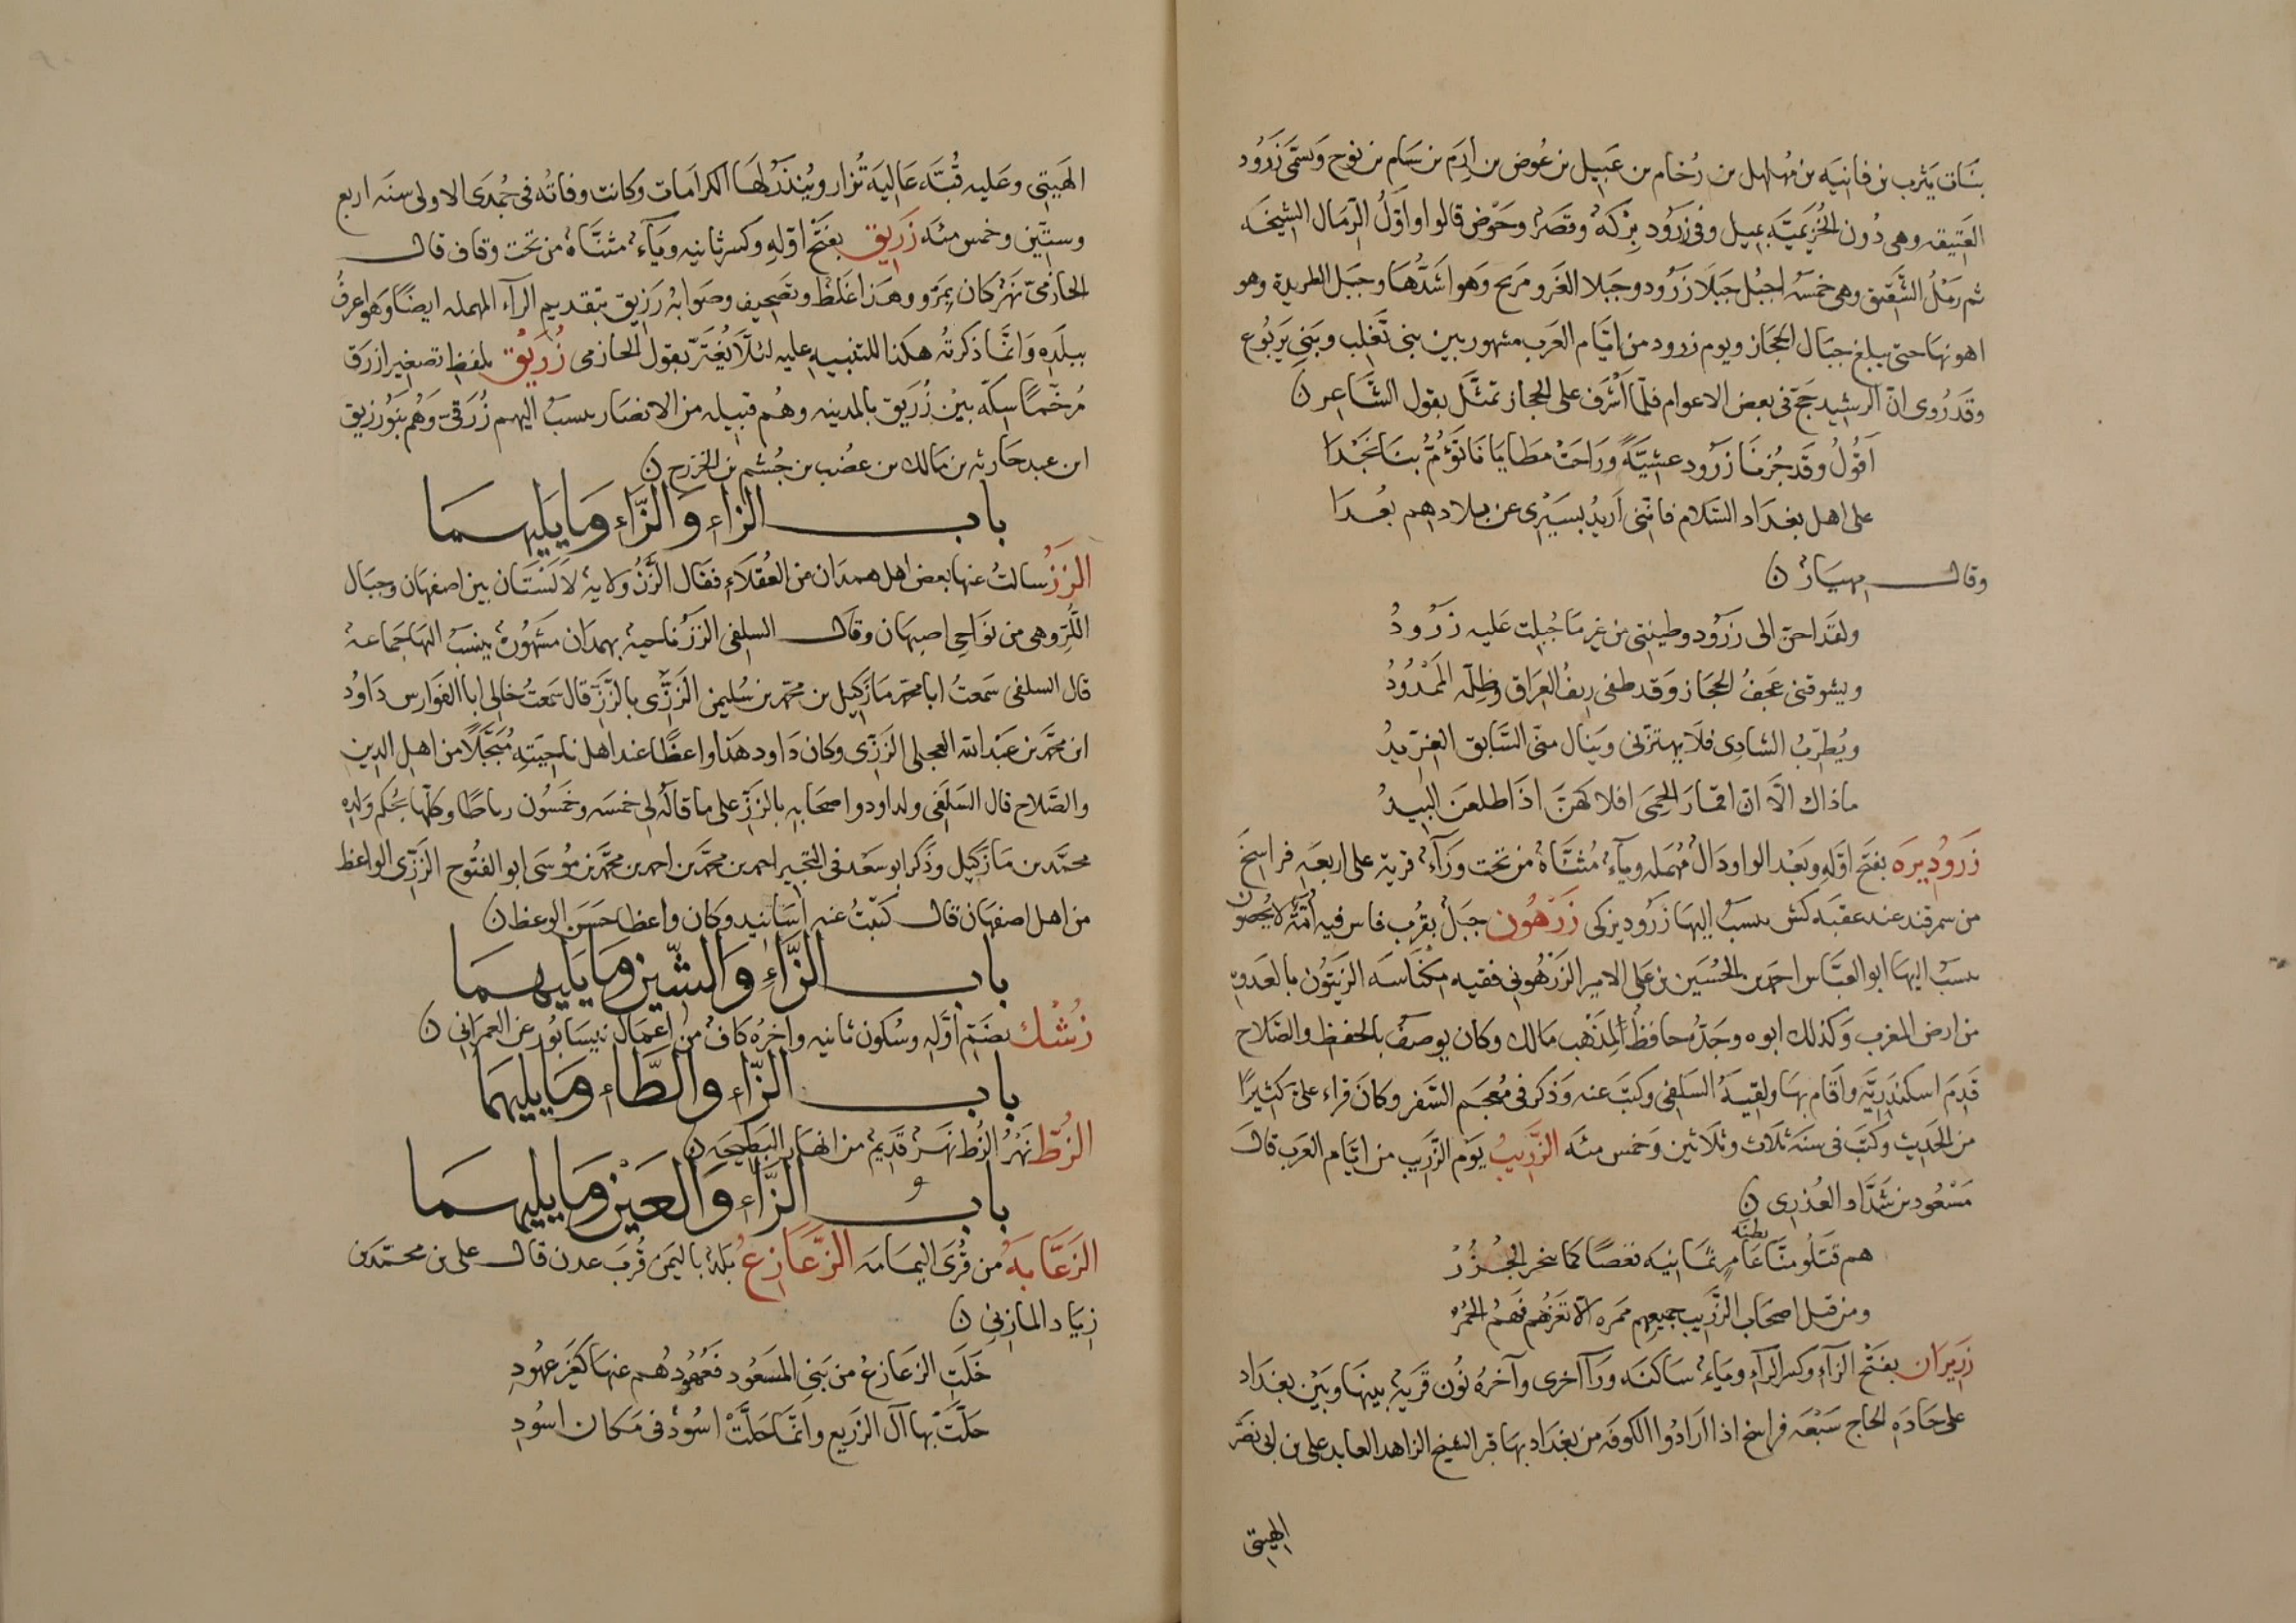 بنات يثرب بن قانيه بن مهلهل بن رخام بن عبيل بن عوض بن ارم بن سام بن نوح وتسمى زرود
العتيقه وهى دون الخزيميّة بميل وفى زرود بركة وقصر وحوض قالوا واوّل الرمال الشيحه
ثم رمل الشقيق وهى خمسه اجبل جبلا زرود وجبلا الغر ومربخ وهو اشدّها وجبل الطريدة وهو
اهونها حتى يبلغ جبال الحجاز ويوم زرود من ايّام العرب مشهور بين بنى تغلب وبنى يربوع
وقد روى انّ الرشيد حجّ فى بعض الاعوام فلمّا اشرف على الحجاز تمثّل بقول الشاعر ن
اقول وقد جزنا زرود عشيّة وراحت مطايانا تؤمّ بنا نجدا
على اهل بغداد السلام فانّنى اريد بسيرى عن بلادهم بعدا
وقال مهيار ن
ولقد احنّ الى زرود وطينتى من غير ما جبلت عليه زرود
ويشوقنى عجف الحجاز وقد طفى ريف العراق وظلّه الممدود
ويطرب الشادى فلا يهتزنى وينال منّى السّابق الغرّيد
ماذاك الّا انّ اقمار الحمى افلاكهنّ اذا طلعن البيد
زروديزه بفتح اوّله وبعد الواو دال مهمله وياء مثنّاة من تحت وزآء قرية على اربعه فراسخ
من سمرقند عند عقبه كش ينسب اليها زروديزكى زرهون جبل بقرب فاس فيه امّة لا يحصون
ينسب اليها ابو العبّاس احمد بن الحسين بن على الامير الزرهونى فقيه مكناسه الزيتون بالعدوة
من ارض المغرب وكذلك ابوه وجدّه حافظ لمذهب مالك وكان يوصف بالحفظ والصّلاح
قدم اسكندريّه واقام بها ولقيه السلفى وكتب عنه وذكر فى معجم السّفر وكان قراء علىّ كثيرًا
من الحديث وكتب فى سنة ثلاث وثلاثين وخمس مئه الزّريب يوم الزّريب من ايّام العرب قال
مسعود بن شدّاد العذرى ن
هم قتلو منّا بظنّه عامر ثمانيه نعصًا كما ينحر الجزر
ومن قبل اصحاب الزّريب جميعهم مره الا تغزهم فهم الحمر
زريران بفتح الزآء وكسر الرآء وياء ساكنه ورآ اخرى وآخره نون قرية بينها وبين بغداد
على جادة الحاج سبعه فراسخ اذا ارادوا الكوفه من بغداد بها قبر الشيخ الزاهد العابد على بن ابى نصر
الهيتى
الهيتى وعليه قبّه عالية تزار وينذر لها الكرامات وكانت وفاته فى جمدى الاولى سنه اربع
وستّين وخمس مئه زريق بفتح اوّله وكسر ثانيه وياء مثنّاة من تحت وقاف قال
الحازمىّ نهر كان بمرو وهذا غلط وتصحيف وصوابه رزيق بتقديم الرآء المهمله ايضًا وهو اعرف
ببلده وانّما ذكرته هكذا للتنبيه عليه لئلّا يغترّ بقول الحازمى زريق بلفظ تصغير ازرق
مرخّمًا سكّه بنى زريق بالمدينه وهم قبيله من الانصار ينسب اليهم زرقىّ وهم بنو زريق
ابن عبد حارثه بن مالك بن عضب بن جشم بن الخزرج ن
باب الزاء والزّاء وما يليهما
الزز سالت عنها بعض اهل همدان من العقلاء فقال الزز ولاية لا لستان بين اصفهان وجبال
اللّر وهى من نواحى اصبهان وقال السلفى الزز ناحية بهمدان مشهورة ينسب اليها جماعة
قال السلفى سمعت ابا محمد مازكيل بن محمد بن سليمن الززّى بالزّز قال سمعت خالى ابا الفوارس داود
ابن محمّد بن عبد الله العجلى الززّى وكان داود هذا واعظًا عند اهل ناحيته مبجّلًا من اهل الدين
والصّلاح قال السلفى ولداود واصحابه بالززّ على ما قاله لى خمسه وخمسون رباطًا وكلّها بحكم ولده
محمّد بن مازكيل وذكر ابو سعد فى التحبير احمد بن محمّد بن احمد بن محمّد بن موسى ابو الفتوح الززّى الواعظ
من اهل اصفهان قال كتبت عنه اسانيد وكان واعظا حسن الوعظ ن
باب الزّاء والشّين وما يليهما
زشك بضمّ اوّله وسكون ثانيه واخره كاف من اعمال نيسابور عن العمرانى ن
باب الزّاء والطّاء وما يليهما
الزطّ نهر الزط نهر قديم من انهار البطيحه ن
باب الزّاء والعين وما يليهما
الزعّابة من قرى اليمامه الزّعازع بلد باليمن قرب عدن قال على بن محمّد بن
زياد المازنى ن
خلت الزعازع من بنى المسعود فعهودهم عنها كغير عهود
حلّت بها آل الزريع وانّما حلّت اسود فى مكان اسود